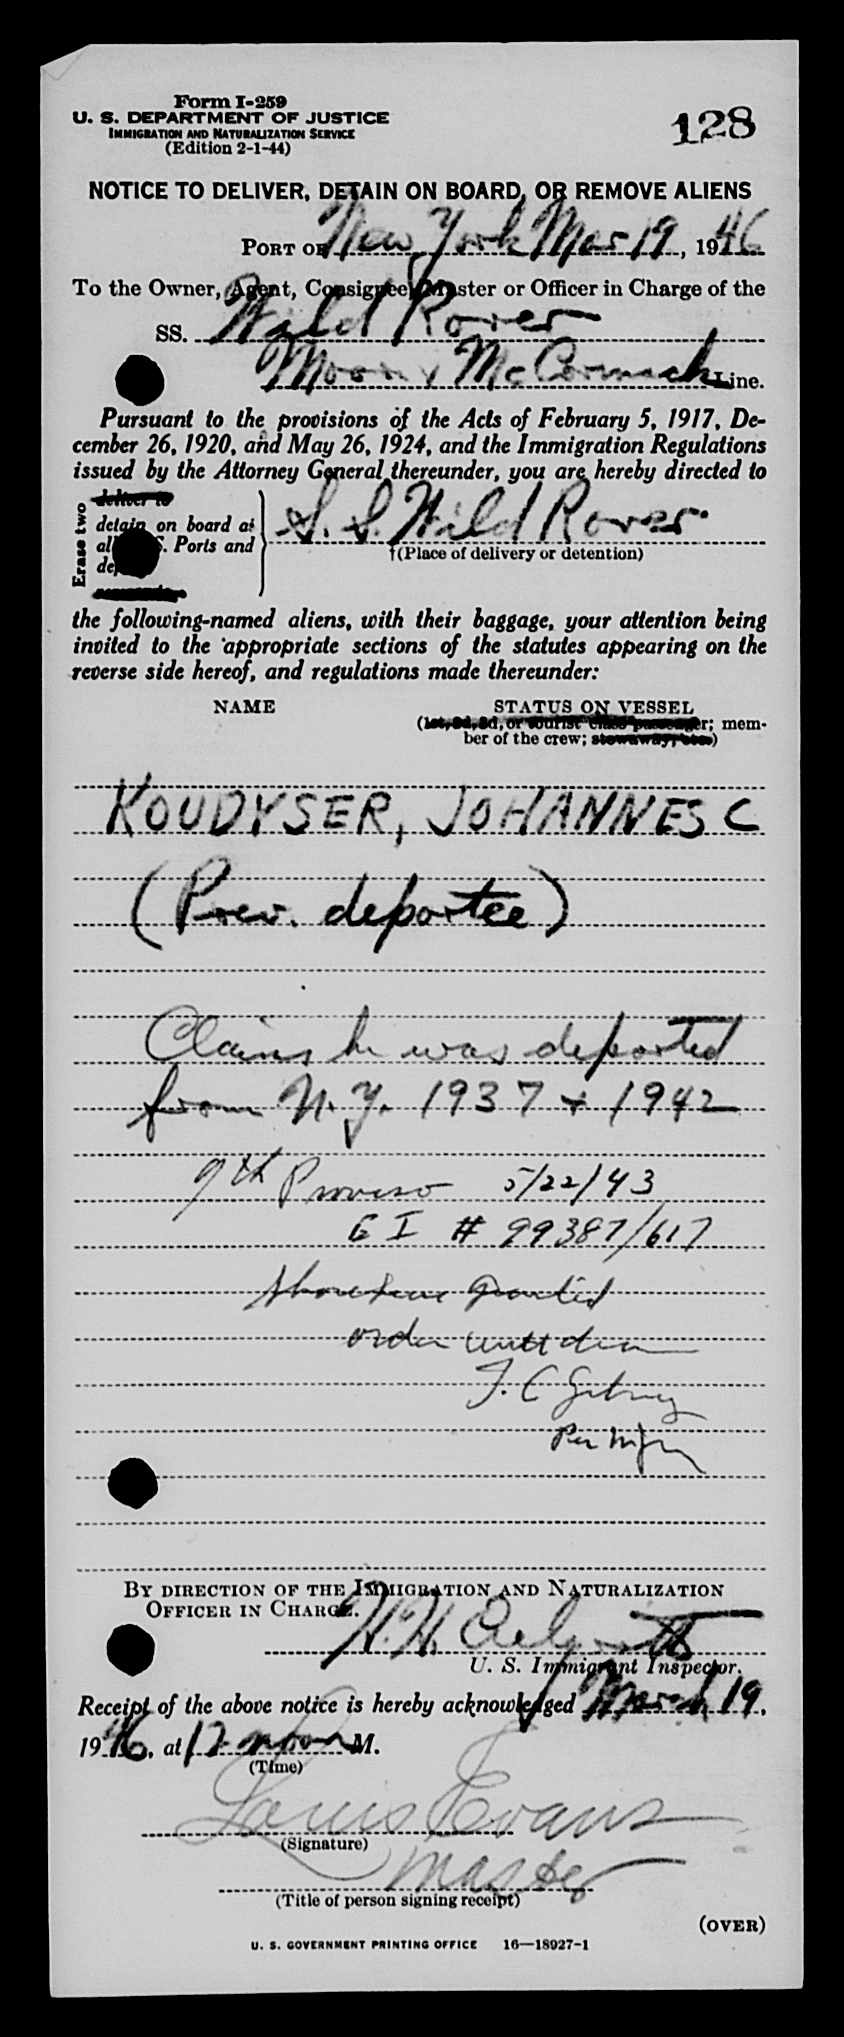 Form I-259
U. S. DEPARTMENT OF JUSTICE
IMMIGRATION AND NATURALIZATION SERVICE
(Edition 2-1-44)
128
NOTICE TO DELIVER, DETAIN ON BOARD, OR REMOVE ALIENS
PORT OF New York Mar 19, 1946
To the Owner, Agent, Consignee, Master or Officer in Charge of the
SS. Wild Rover
Moore & McCormack Line.
Pursuant to the provisions of the Acts of February 5, 1917, De-
cember 26, 1920, and May 26, 1924, and the Immigration Regulations
issued by the Attorney General thereunder, you are hereby directed to
Erase two
deliver to
detain on board at
all S. Ports and
S. S. Wild Rover
†(Place of delivery or detention)
the following-named aliens, with their baggage, your attention being
invited to the appropriate sections of the statutes appearing on the
reverse side hereof, and regulations made thereunder:
NAME
STATUS ON VESSEL
(1st, 2d, 3d, or tourist class passenger; mem-
ber of the crew; stowaway, etc.)
KOUDYSER, JOHANNES C
(Prev. deportee)
Claims he was deported
from N.Y. 1937 + 1942
9th Proviso 5/22/43
E I # 99387/617
Shore leave granted
order written
Per
BY DIRECTION OF THE IMMIGRATION AND NATURALIZATION
OFFICER IN CHARGE.
H. H.
U. S. Immigrant Inspector.
Receipt of the above notice is hereby acknowledged March 19,
1946, at 12 noon M.
(Time)
Louis Evans
(Signature)
Master
(Title of person signing receipt)
(OVER)
U. S. GOVERNMENT PRINTING OFFICE 16—18927-1